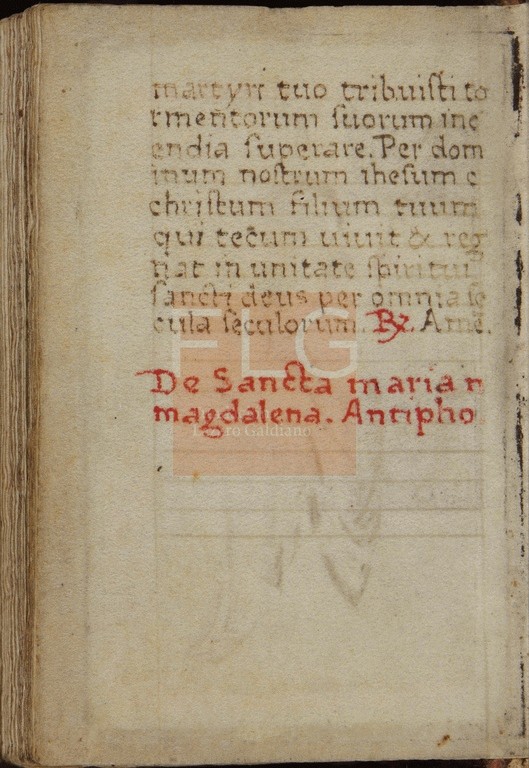 martyri tuo tribuisti to
rmentorum suorum inc
endia superare. Per dom
inum nostrum ihesum c
christum filium tuum
qui tecum uiuit & reg
nat in unitate spiritui
sancti deus per omnia se
cula seculorum. R. Amē.
De Sancta maria m
magdalena. Antipho
FLG
Lázaro Galdiano